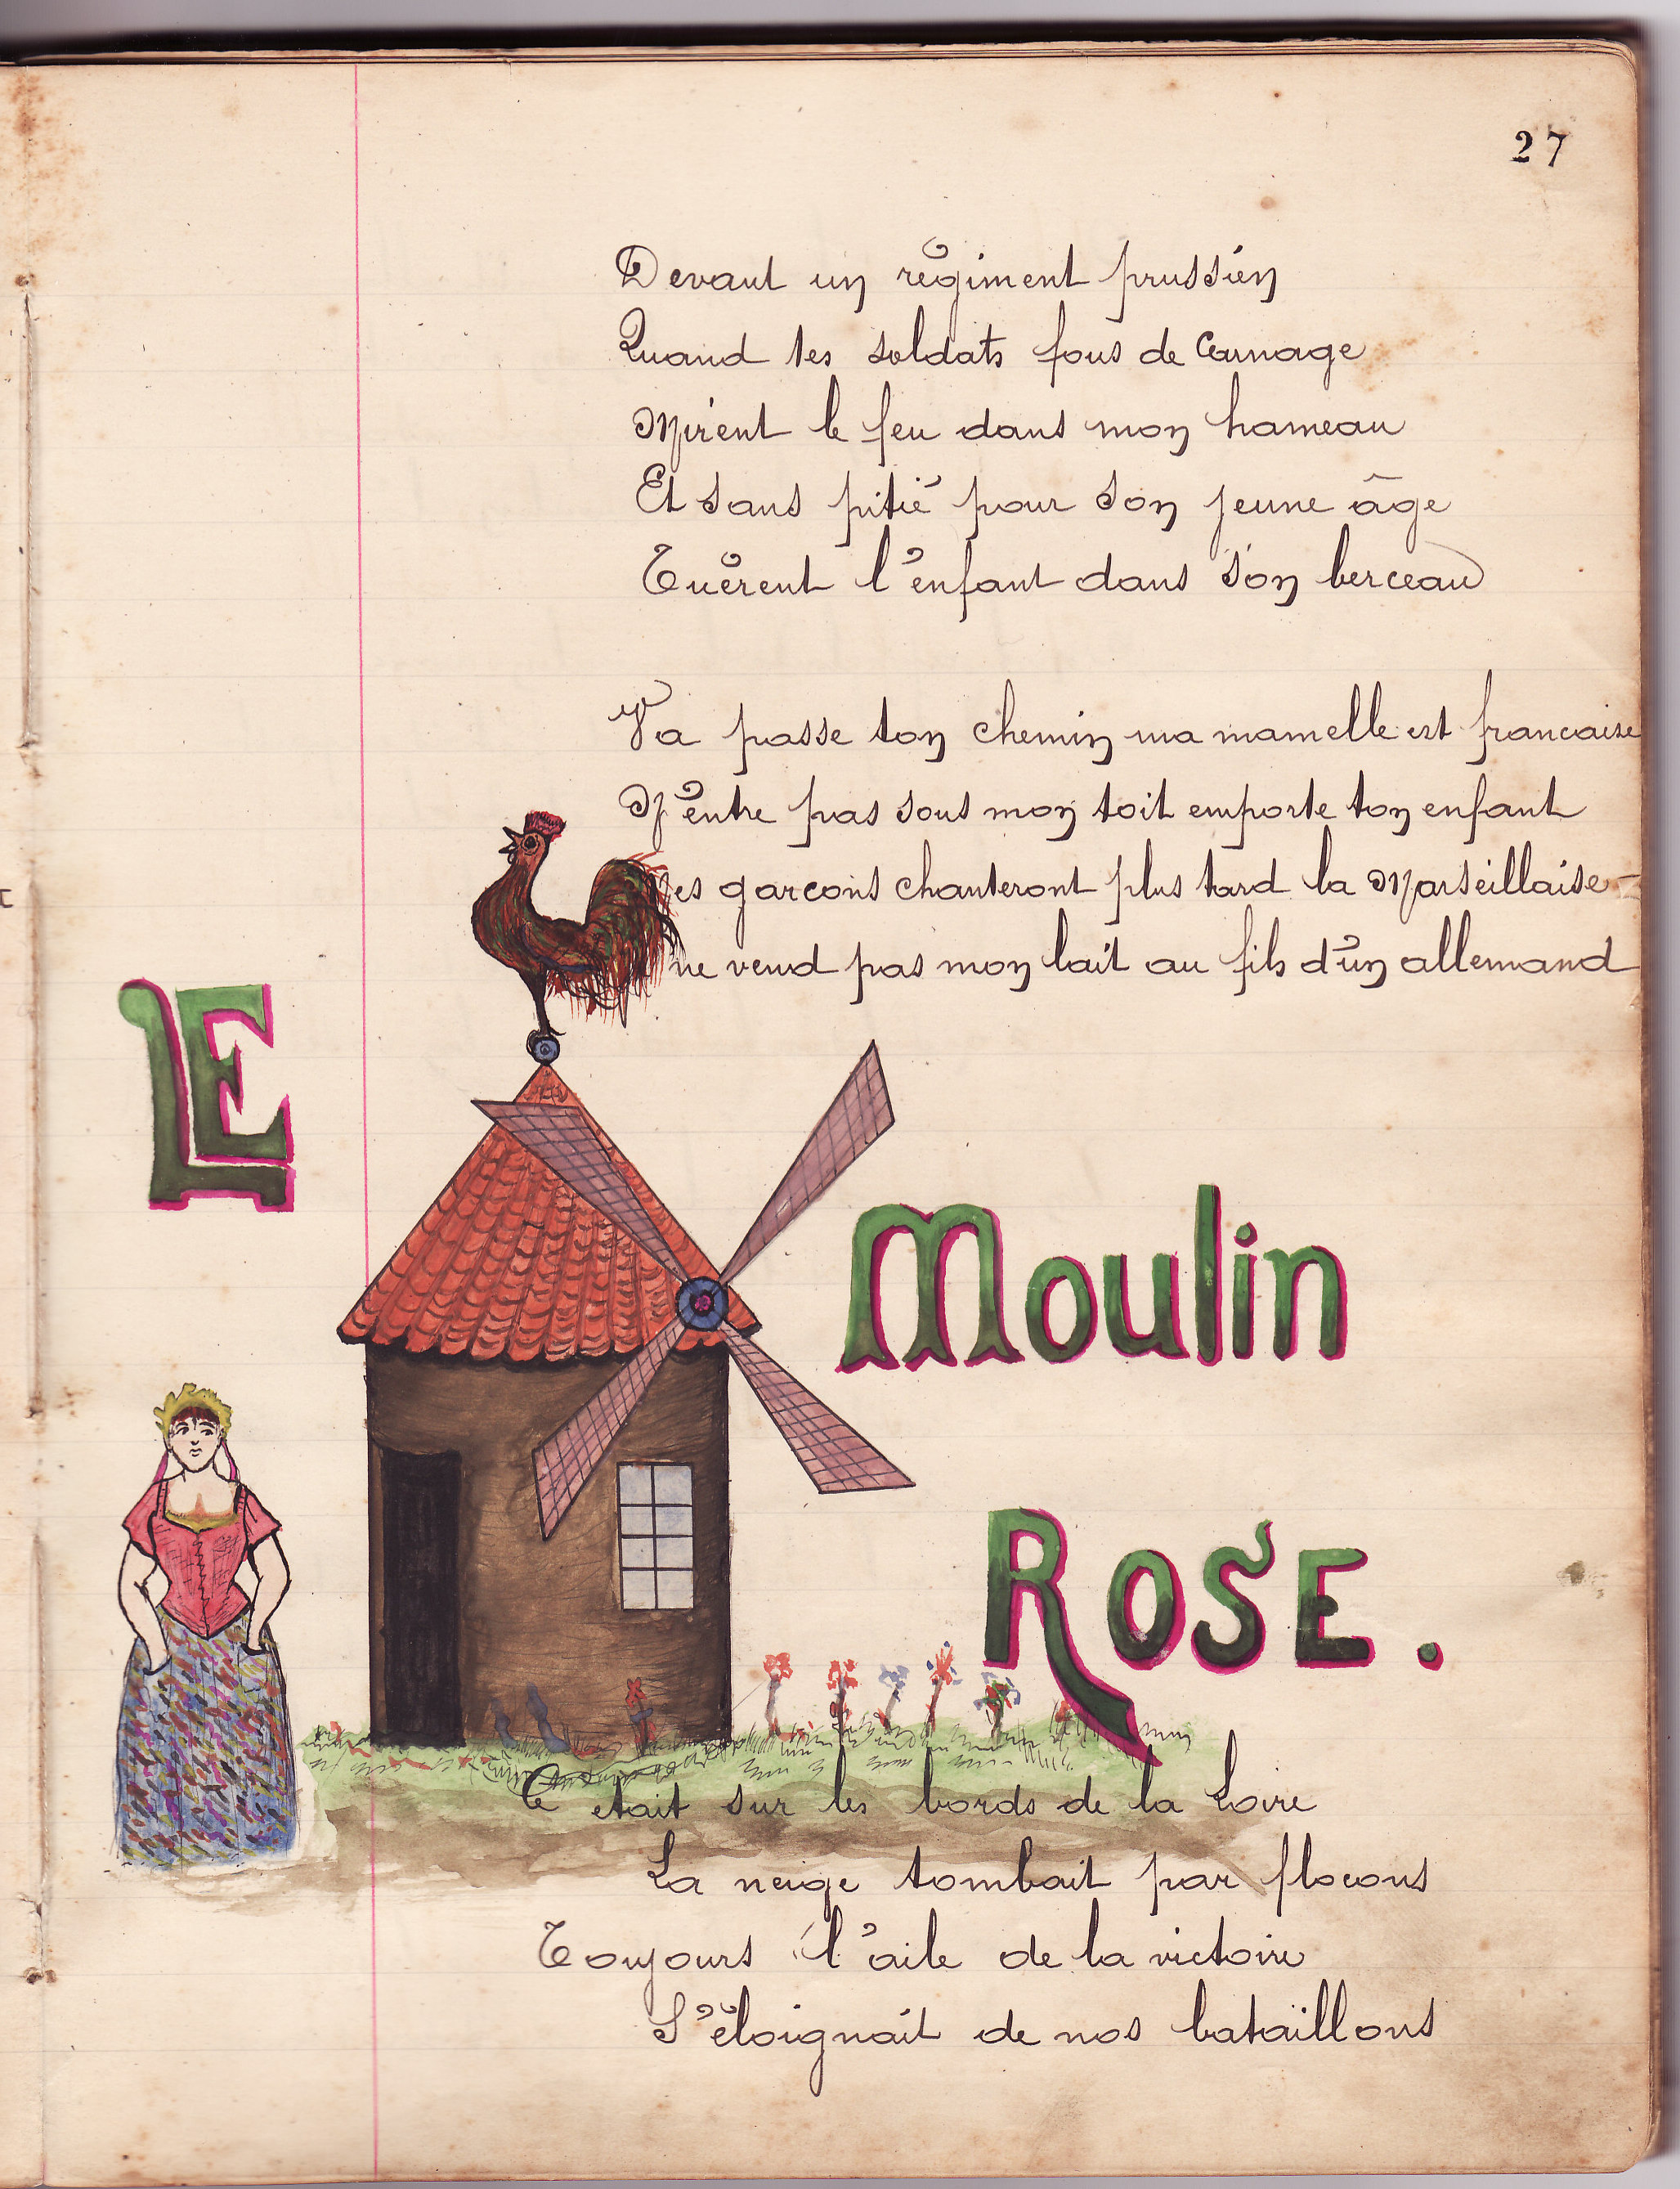 27
Devant un régiment prussien
Quand tes soldats fous de Carnage
Mirent le feu dans mon hameau
Et sans pitié pour son jeune âge
Tuèrent l'enfant dans son berceau
Va passe ton chemin ma mamelle est francaise
N'entre pas sous mon toit emporte ton enfant
Mes garcons chanteront plus tard la Marseillaise
ne vend pas mon lait au fils d'un allemand
LE
Moulin
ROSE.
C etait sur les bords de la Loire
La neige tombait par flocons
Toujours l'aile de la victoire
S'éloignait de nos bataillons